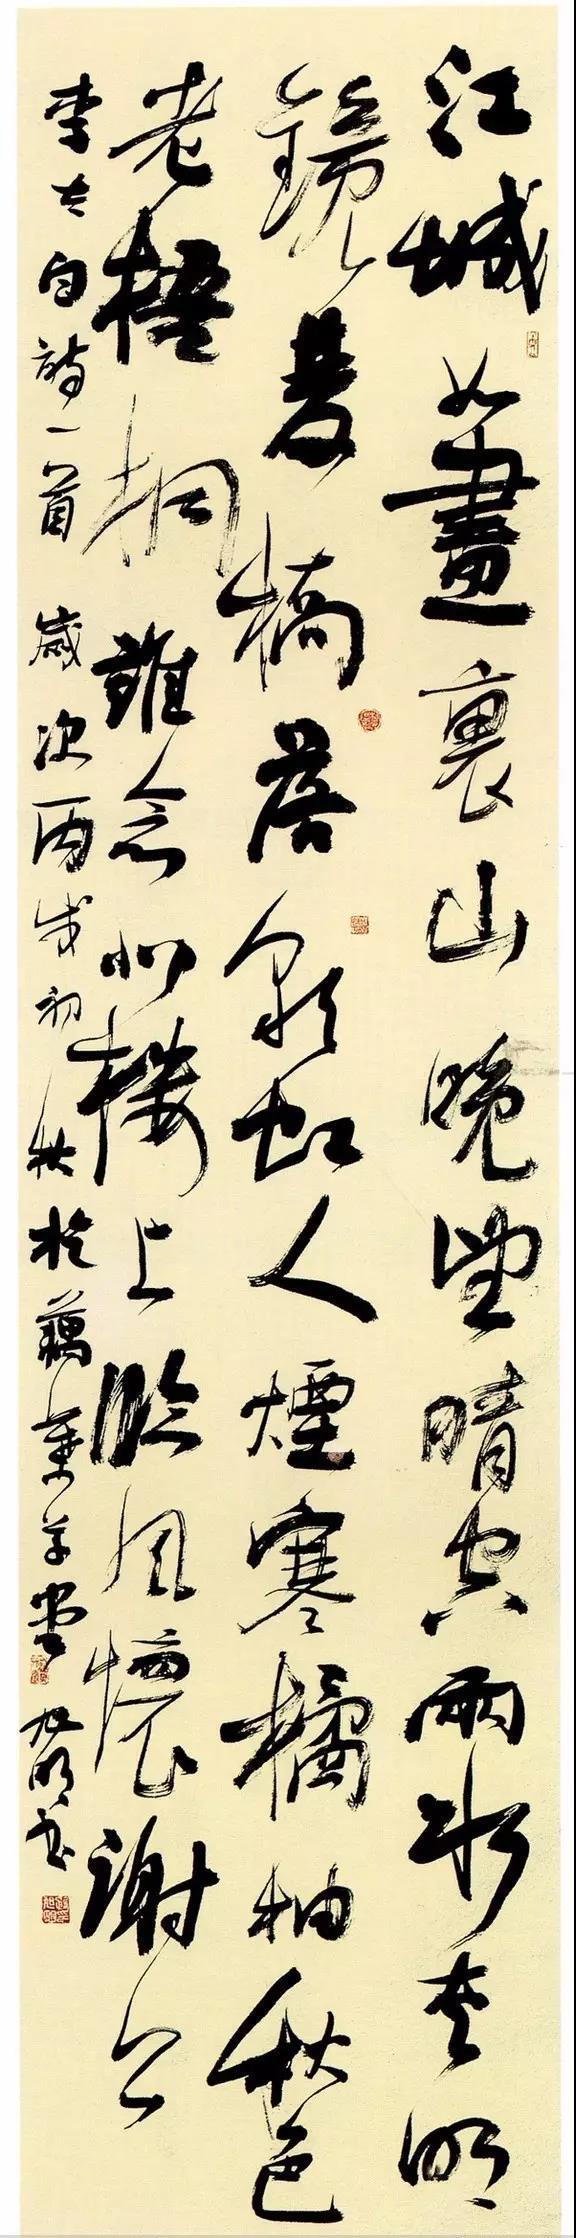 江城如畫裏山晚望晴空兩水夾明
鏡雙橋落彩虹人煙寒橘柚秋色
老梧桐誰念北樓上臨風懷謝公
李太白詩一首 歲次丙戌初秋於藕華草堂 旭明書